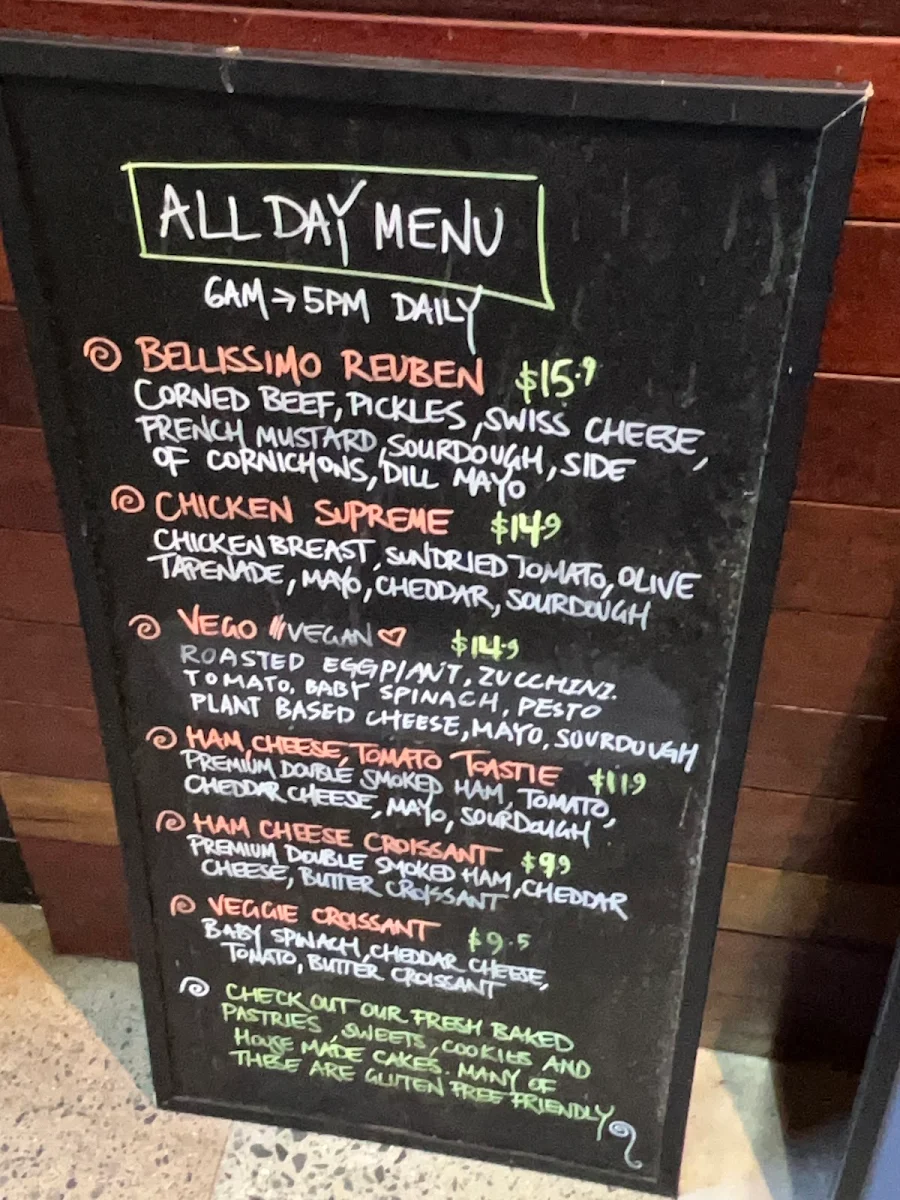 ALL DAY MENU
6AM → 5PM DAILY
BELLISSIMO REUBEN $15.9
CORNED BEEF, PICKLES, SWISS CHEESE,
FRENCH MUSTARD, SOURDOUGH, SIDE
OF CORNICHONS, DILL MAYO
CHICKEN SUPREME $14.9
CHICKEN BREAST, SUNDRIED TOMATO, OLIVE
TAPENADE, MAYO, CHEDDAR, SOURDOUGH
VEGO // VEGAN ♡ $14.9
ROASTED EGGPLANT, ZUCCHINI.
TOMATO, BABY SPINACH, PESTO
PLANT BASED CHEESE, MAYO, SOURDOUGH
HAM, CHEESE, TOMATO TOASTIE $11.9
PREMIUM DOUBLE SMOKED HAM, TOMATO,
CHEDDAR CHEESE, MAYO, SOURDOUGH
HAM CHEESE CROISSANT $9.9
PREMIUM DOUBLE SMOKED HAM, CHEDDAR
CHEESE, BUTTER CROISSANT
VEGGIE CROISSANT $9.5
BABY SPINACH, CHEDDAR CHEESE,
TOMATO, BUTTER CROISSANT
CHECK OUT OUR FRESH BAKED
PASTRIES, SWEETS, COOKIES AND
HOUSE MADE CAKES. MANY OF
THESE ARE GLUTEN FREE FRIENDLY